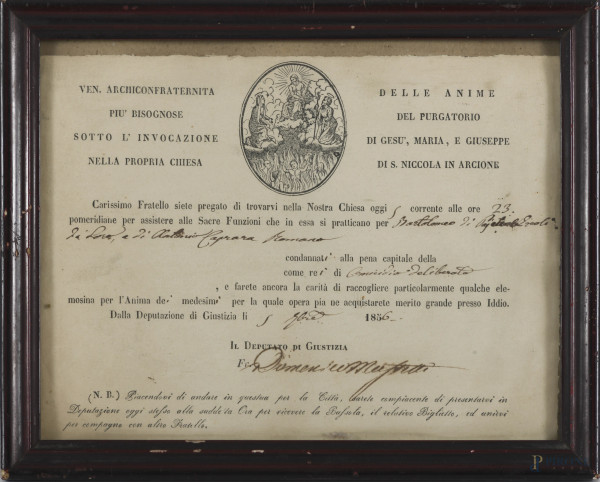 VEN. ARCHICONFRATERNITA DELLE ANIME
PIU' BISOGNOSE DEL PURGATORIO
SOTTO L' INVOCAZIONE DI GESU', MARIA, E GIUSEPPE
NELLA PROPRIA CHIESA DI S. NICCOLA IN ARCIONE
Carissimo Fratello siete pregato di trovarvi nella Nostra Chiesa oggi corrente alle ore 23
pomeridiane per assistere alle Sacre Funzioni che in essa si pratticano per Bartolomeo di
da Sora, e di Antonio Caprara Romano
condannati alla pena capitale della
come rei di Omicidio deliberato
, e farete ancora la carità di raccogliere particolarmente qualche ele-
mosina per l'Anima dei medesimi per la quale opera pia ne acquistarete merito grande presso Iddio.
Dalla Deputazione di Giustizia li 1856
IL DEPUTATO DI GIUSTIZIA
Domenico
(N. B.) Piacendovi di andare in questua per la Città, sarete compiacente di presentarvi in
Deputazione oggi stesso alla suddetta Ora per ricevere la Bussola, il relativo Biglietto, ed unirvi
per compagno con altro Fratello.